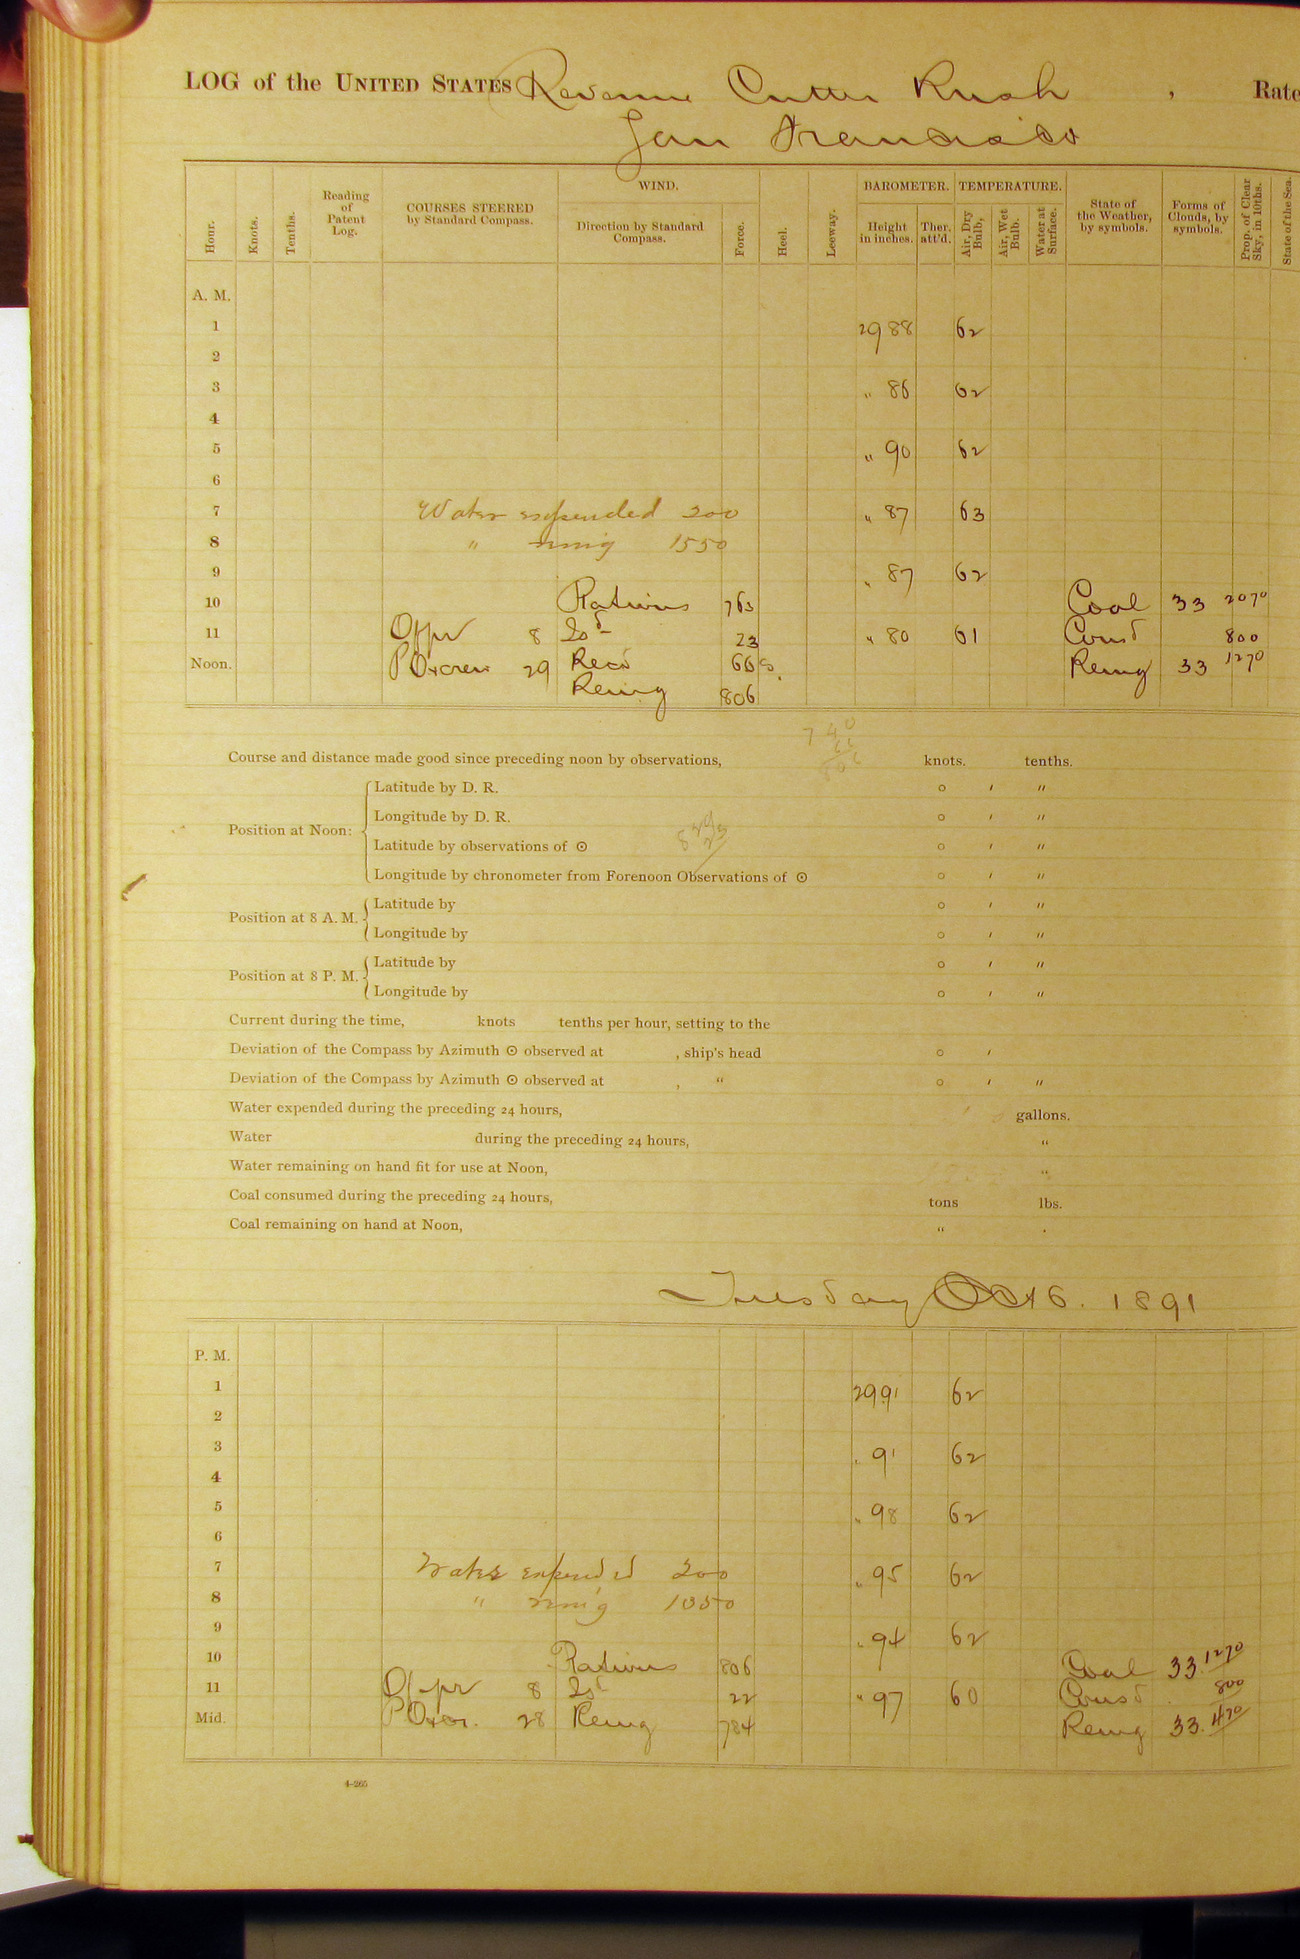 LOG of the UNITED STATES Revenue Cutter Rush, Rate
San Francisco
Hour. Knots. Tenths. Reading of Patent Log. COURSES STEERED by Standard Compass. WIND. Direction by Standard Compass. Force. Heel. Leeway. BAROMETER. Height in inches. Ther. att'd. TEMPERATURE. Air, Dry Bulb, Air, Wet Bulb. Water at Surface. State of the Weather, by symbols. Forms of Clouds, by symbols. Prop. of Clear Sky, in 10ths. State of the Sea.
A. M.
1 29 88 62
2
3 " 86 62
4
5 " 90 62
6
7 Water expended 200 " 87 63
8 " rmig 1550
9 " 87 62
10 Rations 763 Coal 33 2070
11 Offr 8 Isd 23 " 80 61 Consd 800
Noon. P O & crew 29 Recd 66 Remg 33 1270
Remg 806
740
66
806
Course and distance made good since preceding noon by observations, knots. tenths.
Position at Noon:
Latitude by D. R. ° ′ ″
Longitude by D. R. ° ′ ″
Latitude by observations of ☉ ° ′ ″
Longitude by chronometer from Forenoon Observations of ☉ ° ′ ″
Position at 8 A. M.
Latitude by ° ′ ″
Longitude by ° ′ ″
Position at 8 P. M.
Latitude by ° ′ ″
Longitude by ° ′ ″
Current during the time, knots tenths per hour, setting to the
Deviation of the Compass by Azimuth ☉ observed at , ship's head ° ′
Deviation of the Compass by Azimuth ☉ observed at , " ° ′ ″
Water expended during the preceding 24 hours, gallons.
Water during the preceding 24 hours, "
Water remaining on hand fit for use at Noon, "
Coal consumed during the preceding 24 hours, tons lbs.
Coal remaining on hand at Noon, "
Tuesday Oct 6. 1891
P. M.
1 29 91 62
2
3 " 91 62
4
5 " 98 62
6
7 Water expended 200 " 95 62
8 " rmig 1350
9 " 94 62
10 Rations 806 Coal 33. 1270
11 Offr 8 Isd 22 " 97 60 Consd 800
Mid. P O & cr. 28 Remg 784 Remg 33. 470
4-265